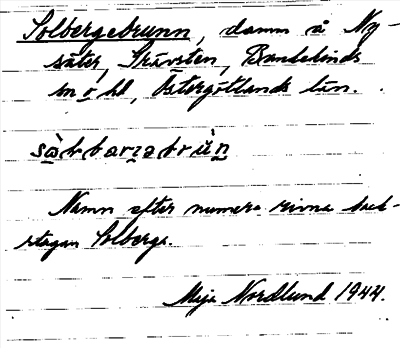 Solbergebrunn, damm å Ny-
säter, Skärsten, Bankekinds
hd, Östergötlands län.
Namn efter numera rivna back-
stugan Solberga.
Maja Nordlund 1944.